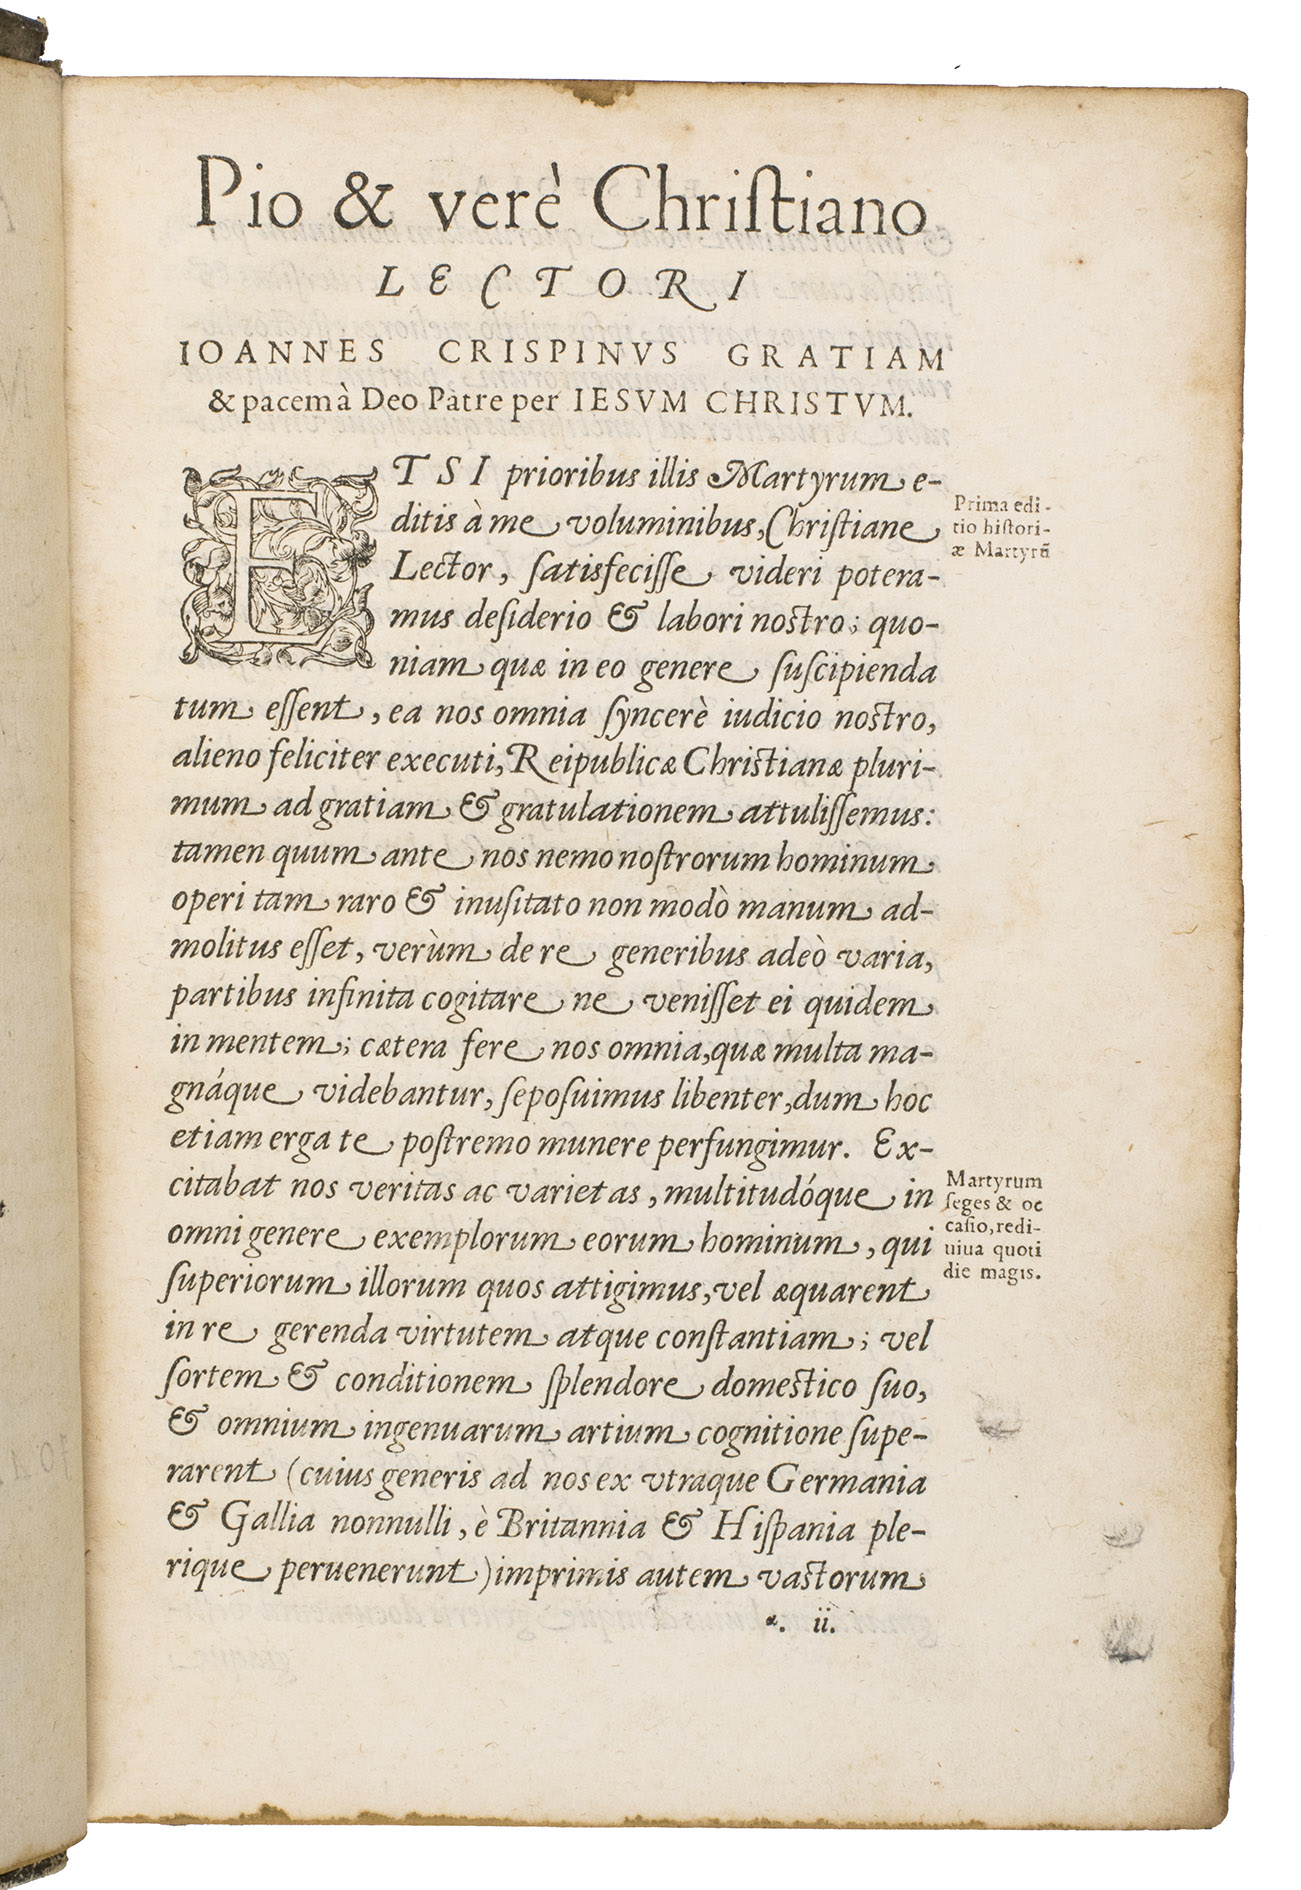 Pio & verè Chriſtiano
LECTORI
IOANNES CRISPINVS GRATIAM
& pacem à Deo Patre per IESVM CHRISTVM.
ETSI prioribus illis Martyrum e-
ditis à me voluminibus, Chriſtiane
Lector, ſatisfeciſſe videri potera-
mus deſiderio & labori noſtro; quo-
niam quæ in eo genere ſuſcipienda
tum eſſent, ea nos omnia ſyncerè iudicio noſtro,
alieno feliciter executi, Reipublicæ Chriſtianæ pluri-
mum ad gratiam & gratulationem attuliſſemus:
tamen quum ante nos nemo noſtrorum hominum
operi tam raro & inuſitato non modò manum ad-
molitus eſſet, verùm de re generibus adeò varia,
partibus infinita cogitare ne veniſſet ei quidem
in mentem; cætera fere nos omnia, quæ multa ma-
gnáque videbantur, ſepoſuimus libenter, dum hoc
etiam erga te poſtremo munere perfungimur. Ex-
citabat nos veritas ac varietas, multitudóque in
omni genere exemplorum eorum hominum, qui
ſuperiorum illorum quos attigimus, vel æquarent
in re gerenda virtutem atque conſtantiam; vel
ſortem & conditionem ſplendore domeſtico ſuo,
& omnium ingenuarum artium cognitione ſupe-
rarent (cuius generis ad nos ex vtraque Germania
& Gallia nonnulli, è Britannia & Hiſpania ple-
rique peruenerunt) imprimis autem vaſtorum
*. ii.
Prima edi-
tio hiſtori-
æ Martyrũ
Martyrum
ſeges & oc
caſio, redi-
uiua quoti
die magis.